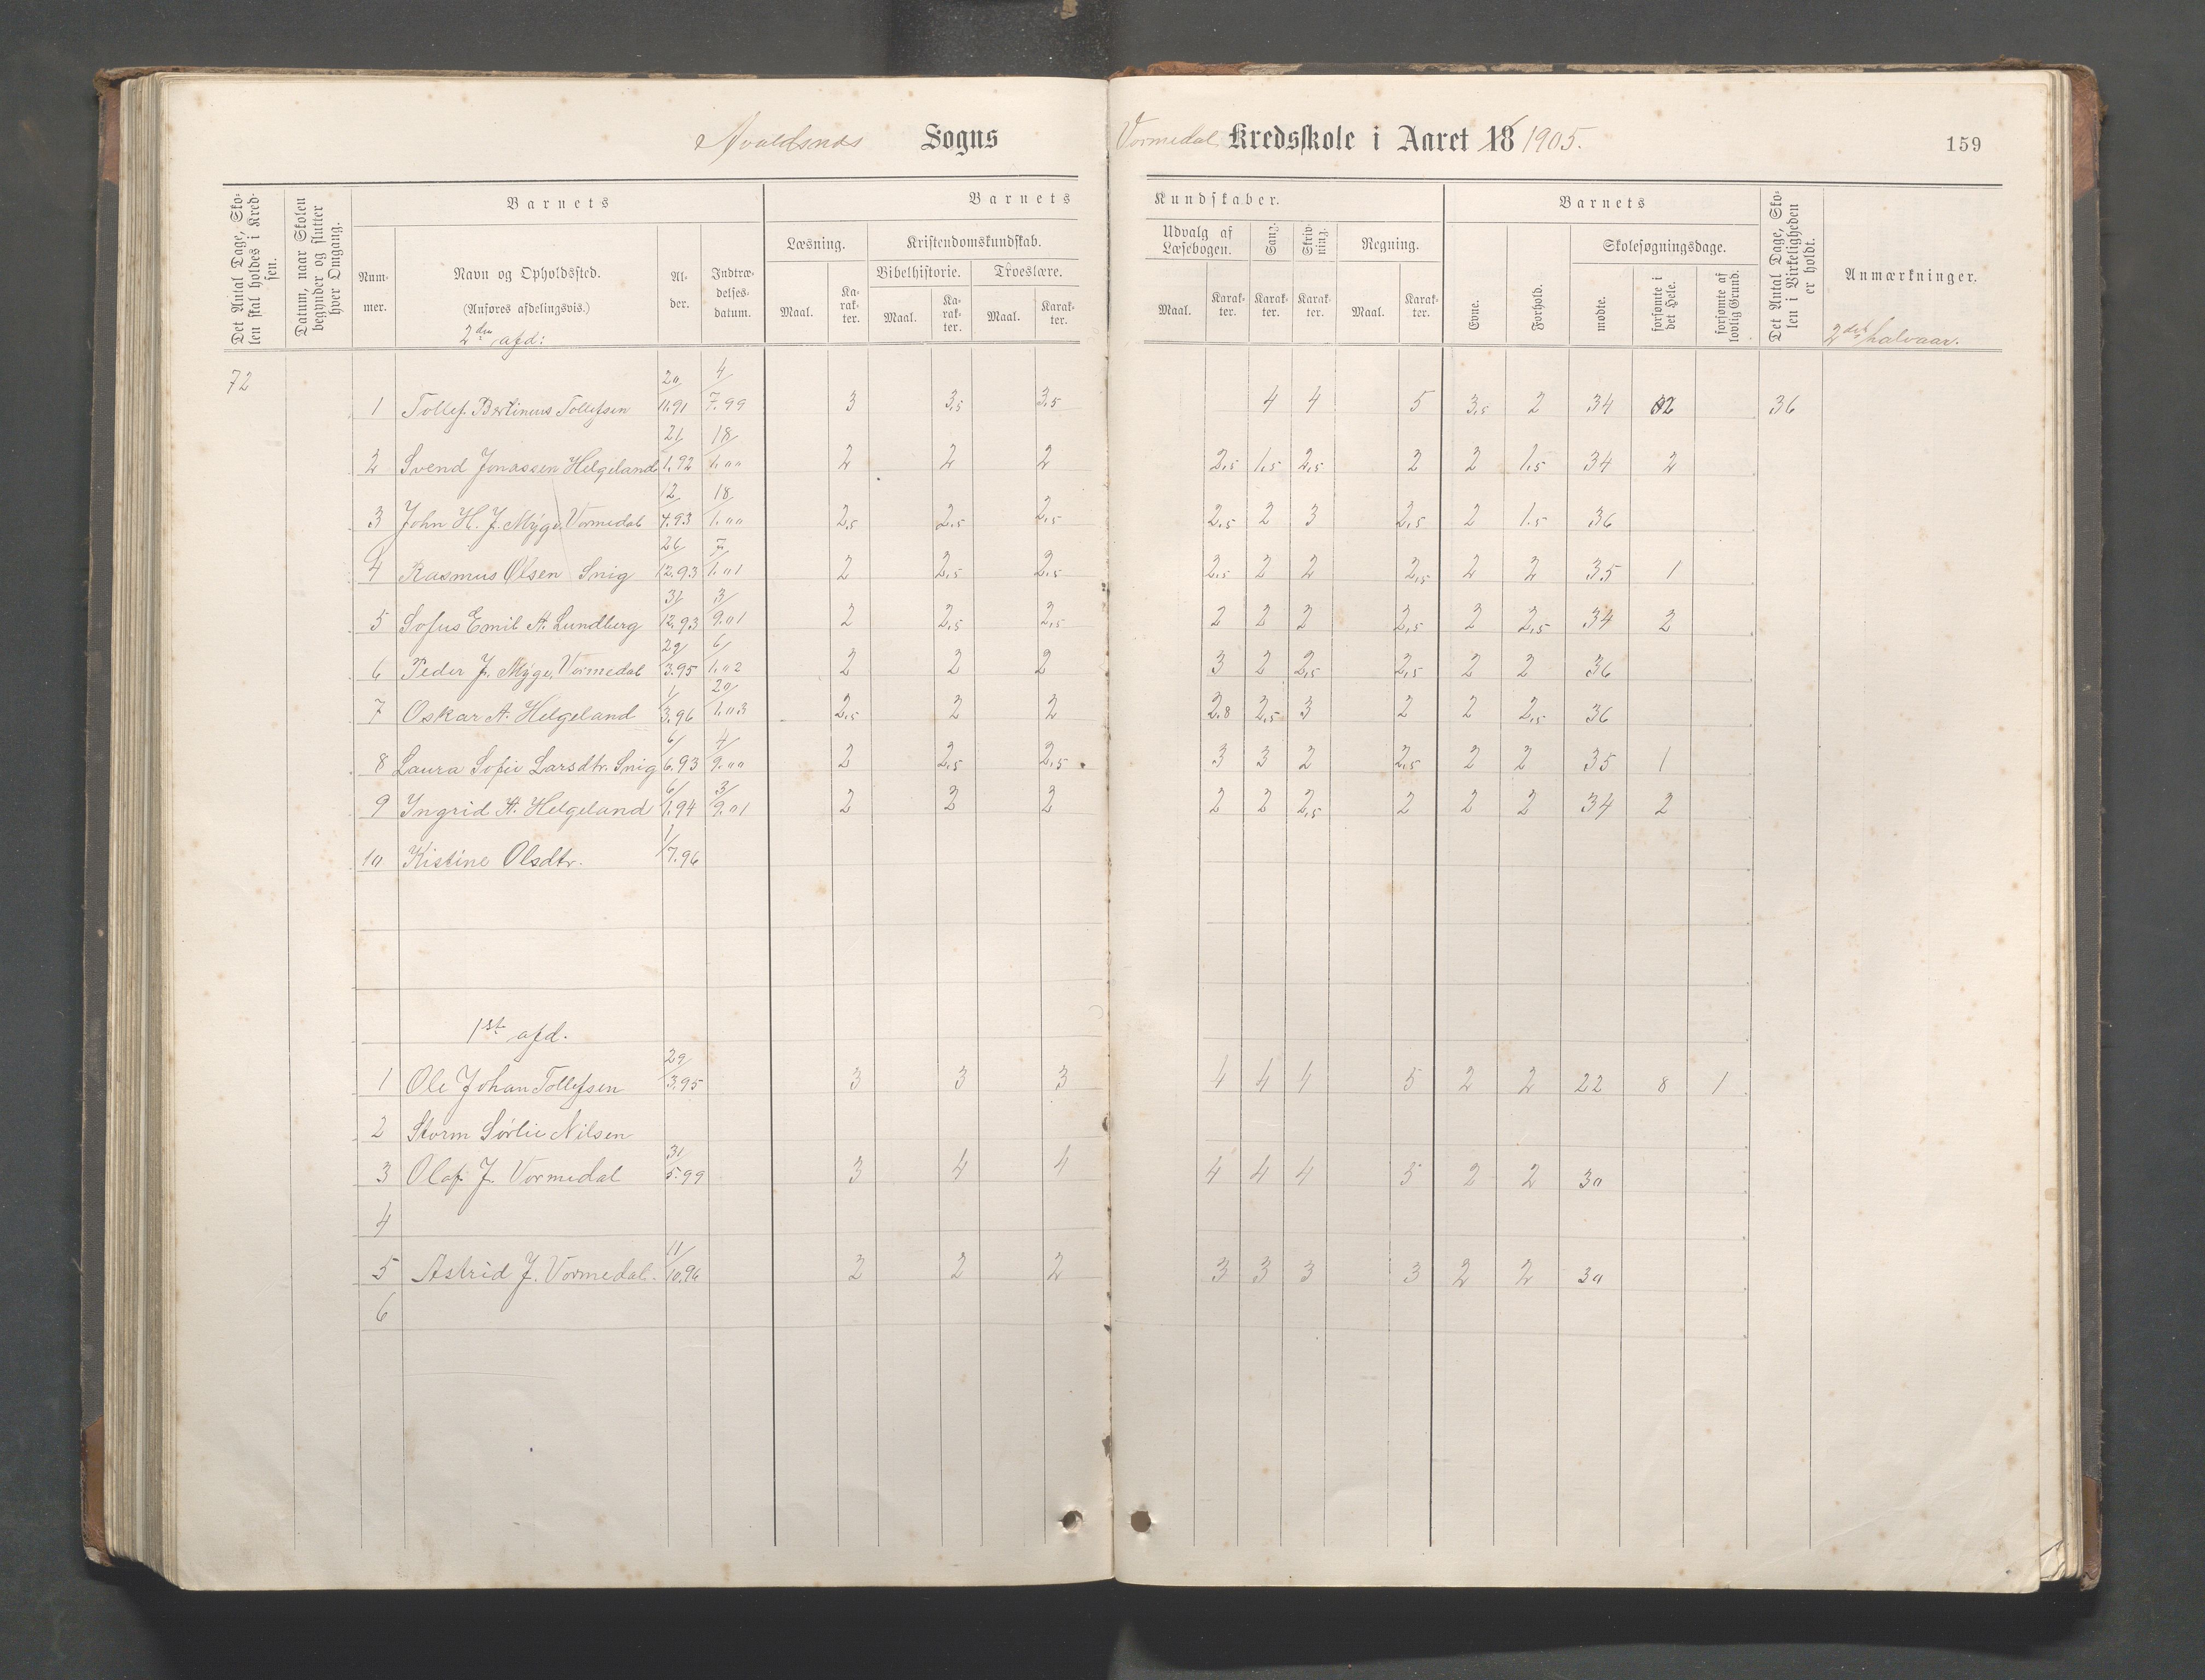 Avaldsnes Sogns Vormedal Kredsskole i Aaret 18 1905. 159
Det Antal Dage, Skolen skal holdes i Kredsen.
Datum, naar Skolen begynder og slutter hver Omgang.
Barnets
Nummer.
Navn og Opholdssted.
(Anføres afdelingsvis.)
2den afd:
Alder.
Indtrædelsesdatum.
Barnets Kundskaber.
Læsning. Maal. Karakter.
Kristendomskundskab.
Bibelhistorie. Maal. Karakter.
Troeslære. Maal. Karakter.
Udvalg af Læsebogen. Maal. Karakter.
Sang. Karakter.
Skrivning. Karakter.
Regning. Maal. Karakter.
Barnets
Evne. Forhold.
Skolesøgningsdage.
mødte. forsømte i det Hele. forsømte af lovlig Grund.
Det Antal Dage, Skolen i Virkeligheden er holdt.
Anmærkninger.
2det halvaar.
72
1 Tollef Bertineus Tollefsen 20/11.91 4/7.99 3 3,5 3,5 4 4 5 3,5 2 34 2 36
2 Svend Jonassen Helgeland 21/1.92 18/1.00 2 2 2 2,5 1,5 2,5 2 2 1,5 34 2
3 John H. J. Myge, Vormedal 12/4.93 18/1.00 2,5 2,5 2,5 2,5 2 3 2,5 2 1.5 36
4 Rasmus Olsen Snig 26/12.93 7/1.01 2 2,5 2,5 2,5 2 2 2,5 2 2 35 1
5 Sofus Emil A. Lundberg 31/12.93 3/9.01 2 2,5 2,5 2 2 2 2,5 2 2,5 34 2
6 Peder J. Myge, Vormedal 29/3.95 6/1.02 2 2 2 3 2 2,5 2,5 2 2 36
7 Oskar A. Helgeland 1/3.96 20/1.03 2,5 2 2 2.8 2,5 3 2 2 2,5 36
8 Laura Sofie Larsdtr. Snig 6/6.93 4/9.00 2 2,5 2,5 3 3 2 2,5 2 2 35 1
9 Ingrid A. Helgeland 6/1.94 3/9.01 2 2 2 2 2 2,5 2 2 2 34 2
10 Kistine Olsdtr. 1/7.96
1ste afd.
1 Ole Johan Tollefsen 29/3.95 3 3 3 4 4 4 5 2 2 22 8 1
2 Storm Sørlie Nilsen
3 Olaf J. Vormedal 31/5.99 3 4 4 4 4 4 5 2 2 30
4
5 Astrid J. Vormedal. 11/10.96 2 2 2 3 3 3 3 2 2 30
6